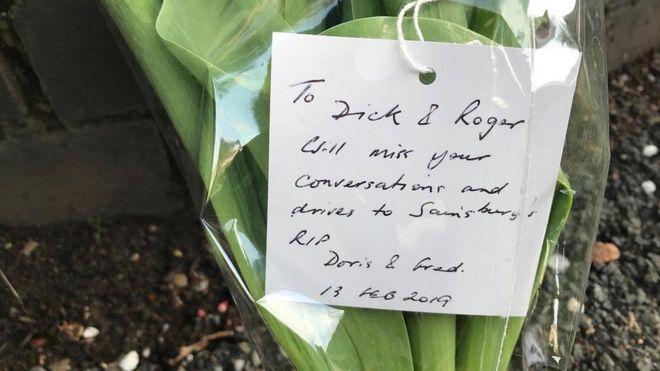 To Dick & Roger
Will miss your
conversations and
drives to Sainsbury's
RIP
Doris & Fred.
13 FEB 2019